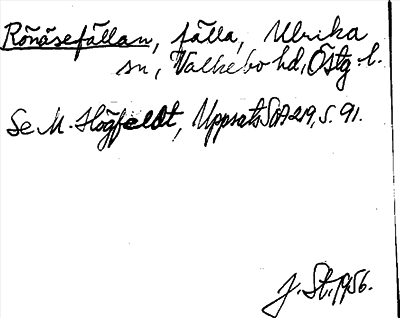 Rönåsefällan, fälla, Ulrika
sn, Valkebo hd, Östg l.
Se M. Högfeldt, Uppsats SOA 219, s. 91.
J. St. 1956.